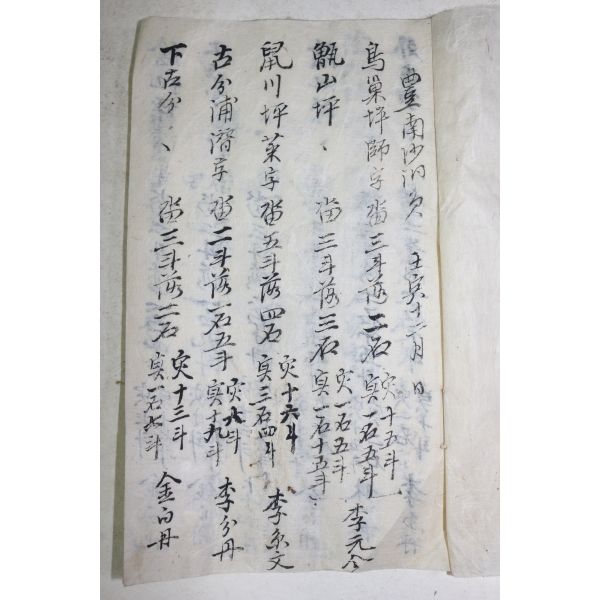 豊南沙洞員 壬寅十一月 日
鳥巢坪師字畓三斗落二石 灾十五斗 実一石五斗 李元会
甑山坪〻 畓三斗落三石 灾一石五斗 実一石十五斗
鼠川坪菜字畓五斗落四石 灾十六斗 実三石四斗 李文
古分浦潛字畓二斗落一石五斗 灾六斗 実十九斗 李分丹
下古分〻 畓三斗落二石 灾十三斗 実一石七斗 金白丹